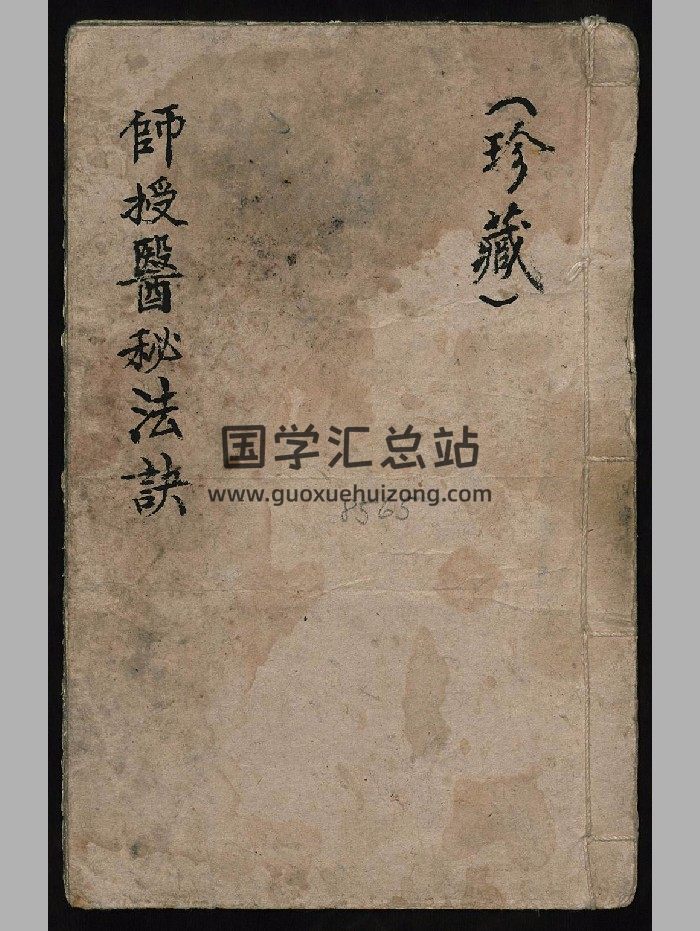 （珍藏）
師授醫秘法訣
国学汇总站
www.guoxuehuizong.com
8565